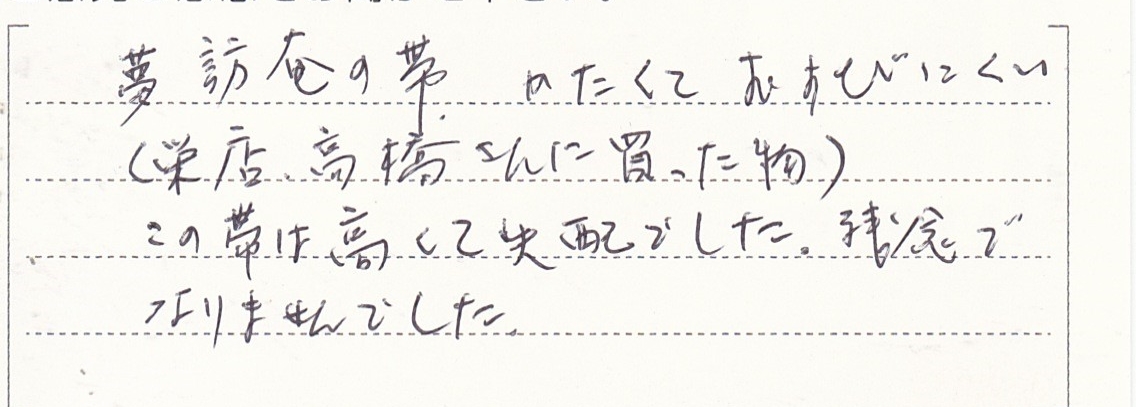 夢訪庵の帯 かたくて おすびにくい
(栄店、高橋さんに買った物)
この帯は高くて失配でした。残念で
なりませんでした。